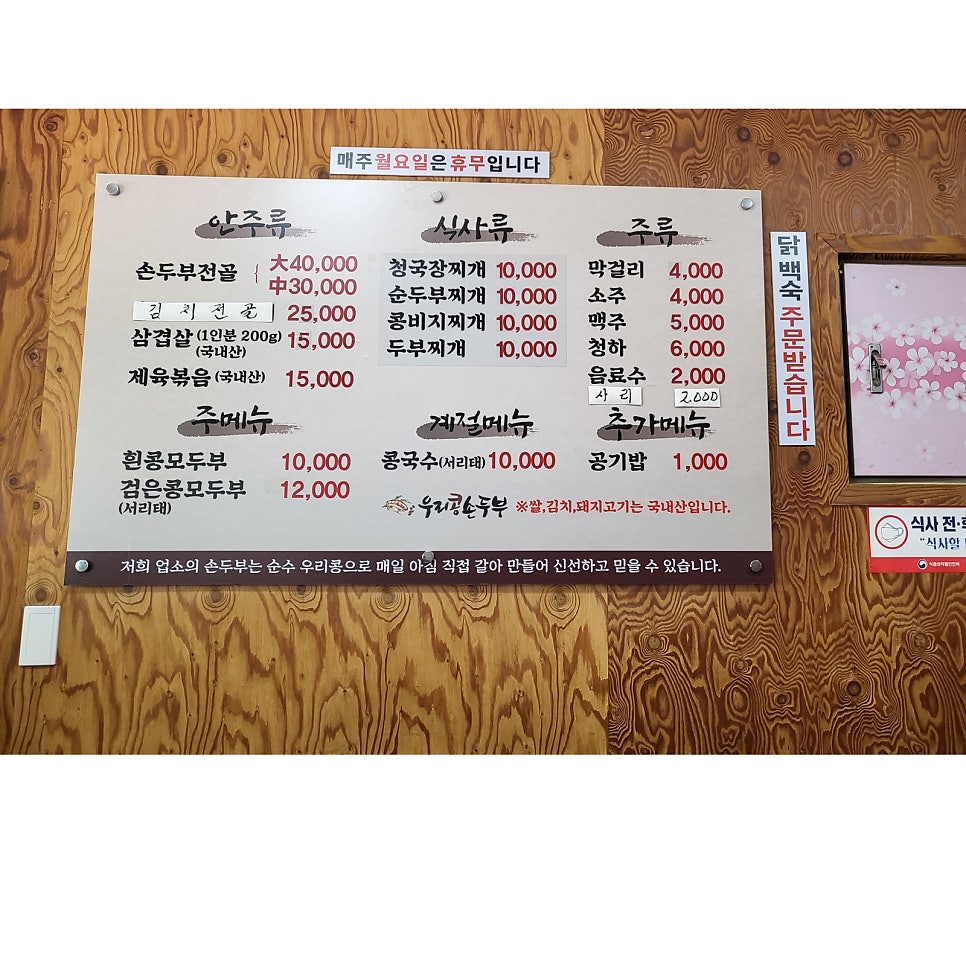 매주월요일은휴무입니다
안주류
손두부전골 { 大40,000
中30,000
김치전골 25,000
삼겹살 (1인분 200g) 15,000
(국내산)
제육볶음 (국내산) 15,000
주메뉴
흰콩모두부 10,000
검은콩모두부 12,000
(서리태)
식사류
청국장찌개 10,000
순두부찌개 10,000
콩비지찌개 10,000
두부찌개 10,000
계절메뉴
콩국수(서리태) 10,000
주류
막걸리 4,000
소주 4,000
맥주 5,000
청하 6,000
음료수 2,000
사리 2000
추가메뉴
공기밥 1,000
우리콩손두부 ※쌀,김치,돼지고기는 국내산입니다.
저희 업소의 손두부는 순수 우리콩으로 매일 아침 직접 갈아 만들어 신선하고 믿을 수 있습니다.
닭백숙 주문받습니다
식사 전·
"식사할
식품의약품안전처